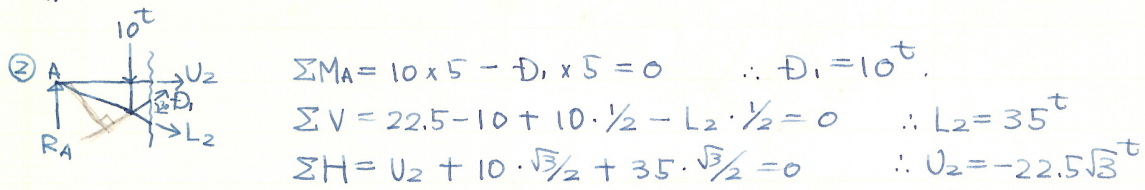 10ᵗ
② A U₂ ΣMA = 10 × 5 − D₁ × 5 = 0 ∴ D₁ = 10ᵗ.
D₁ ΣV = 22.5 − 10 + 10·1/2 − L₂·1/2 = 0 ∴ L₂ = 35ᵗ
L₂
RA ΣH = U₂ + 10·√3/2 + 35·√3/2 = 0 ∴ U₂ = −22.5√3ᵗ